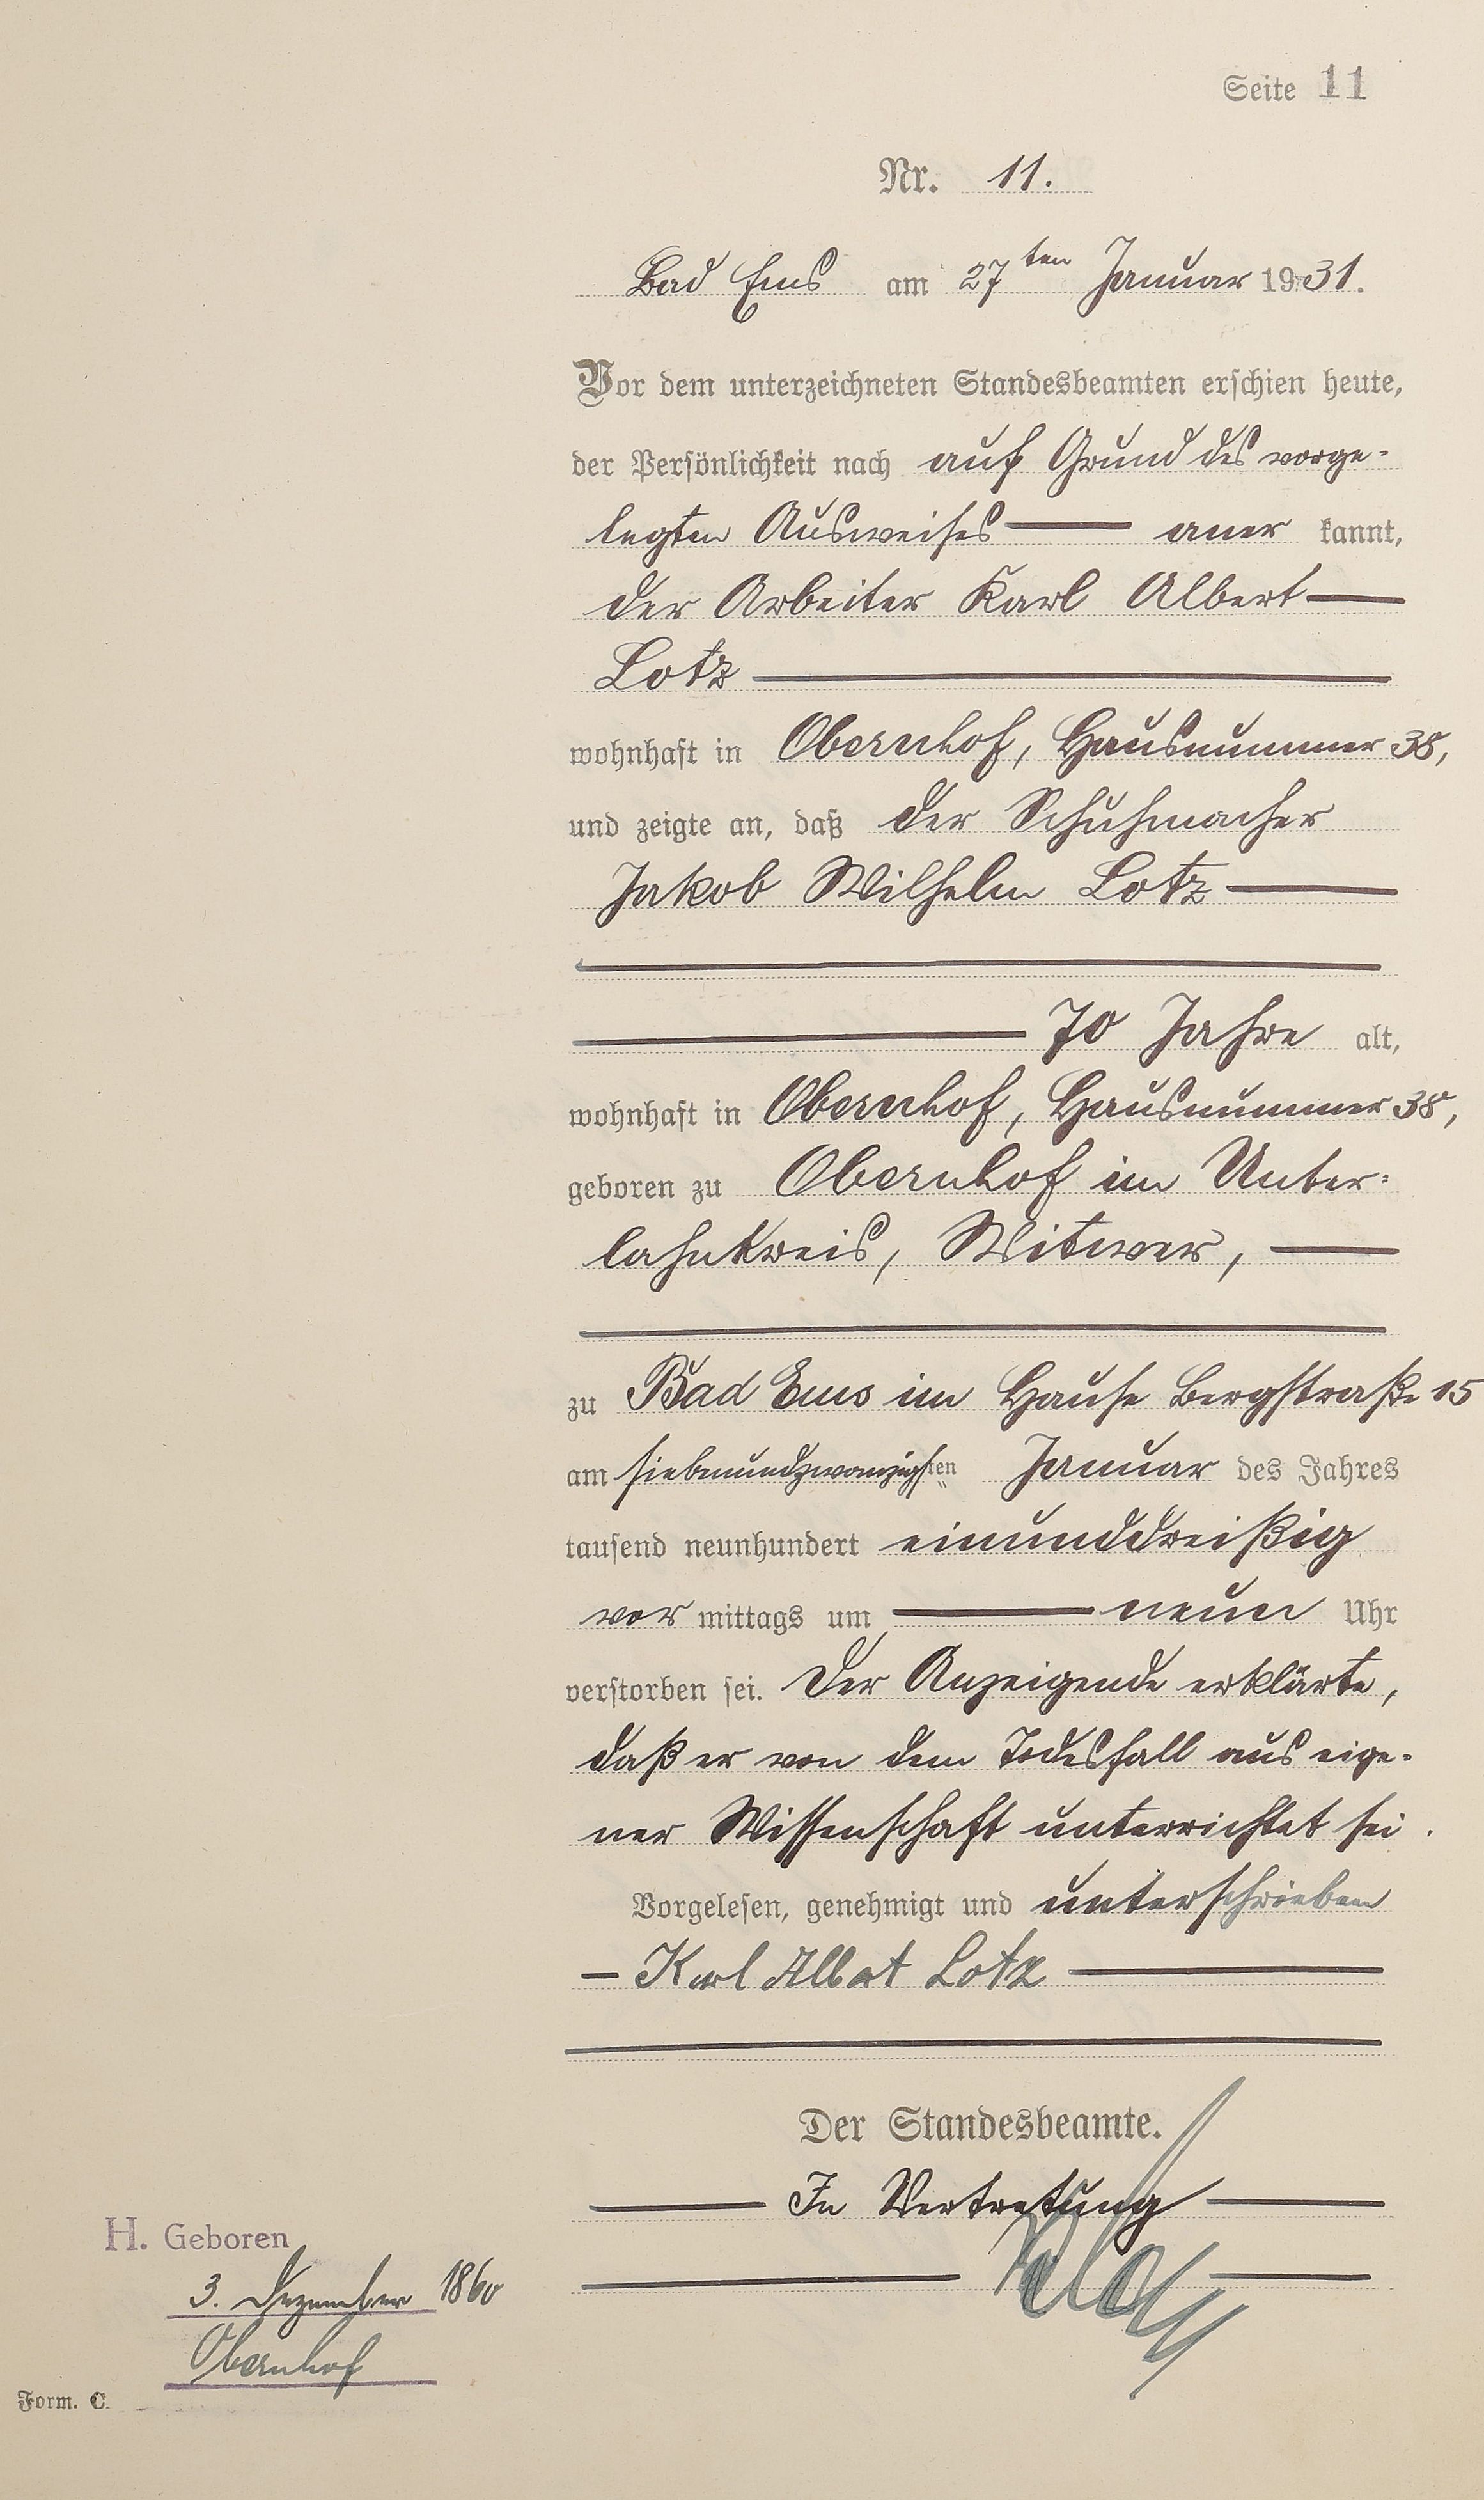 Seite 11
Nr. 11.
Bad Ems am 27ten Januar 1931.
Vor dem unterzeichneten Standesbeamten erschien heute,
der Persönlichkeit nach auf Grund des vorge-
legten Ausweises — aner kannt,
der Arbeiter Karl Albert —
Lotz —
wohnhaft in Obernhof, Hausnummer 38,
und zeigte an, daß der Schuhmacher
Jakob Wilhelm Lotz —
— 70 Jahre alt,
wohnhaft in Obernhof, Hausnummer 38,
geboren zu Obernhof im Unter-
lahnkreis, Witwer, —
zu Bad Ems im Hause Bergstraße 15
am siebenundzwanzigsten Januar des Jahres
tausend neunhundert einunddreißig
vor mittags um — neun Uhr
verstorben sei. Der Anzeigende erklärte,
daß er von dem Todesfall aus eige-
ner Wissenschaft unterrichtet sei.
Vorgelesen, genehmigt und unterschrieben
— Karl Albert Lotz —
Der Standesbeamte.
— In Vertretung —
H. Geboren
3. Dezember 1860
Obernhof
Form. C.